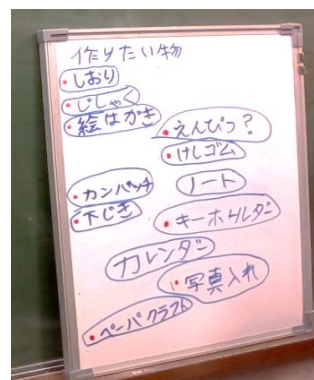 作りたい物
・しおり
・じしゃく
・絵はがき
・えんぴつ?
・けしゴム
・カンバッチ
ノート
・下じき
・キーホルダー
カレンダー
・写真入れ
・ペーパークラフト